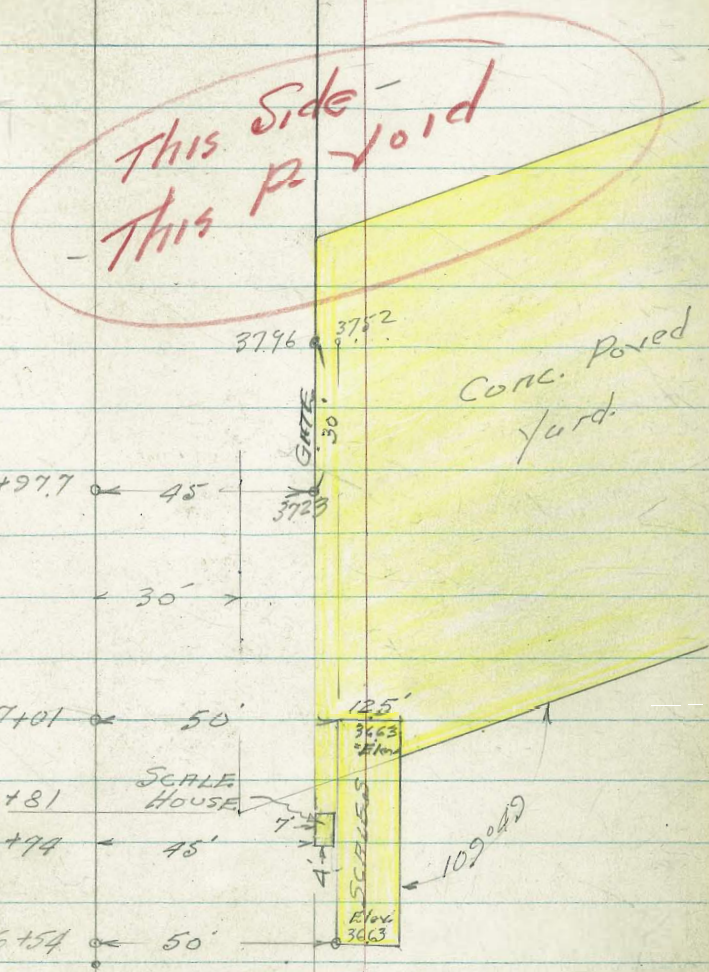 This Side -
- This P. Void
37.96 37.52
Conc. Paved
Yard.
GATE
30'
+97.7 45
37.23
30'
7+01 50' 12.5'
36.63
Elev.
SCALE
HOUSE
+81
7'
+74 45'
4'
SCALES
109°49
Elev.
36.63
6+54 50'